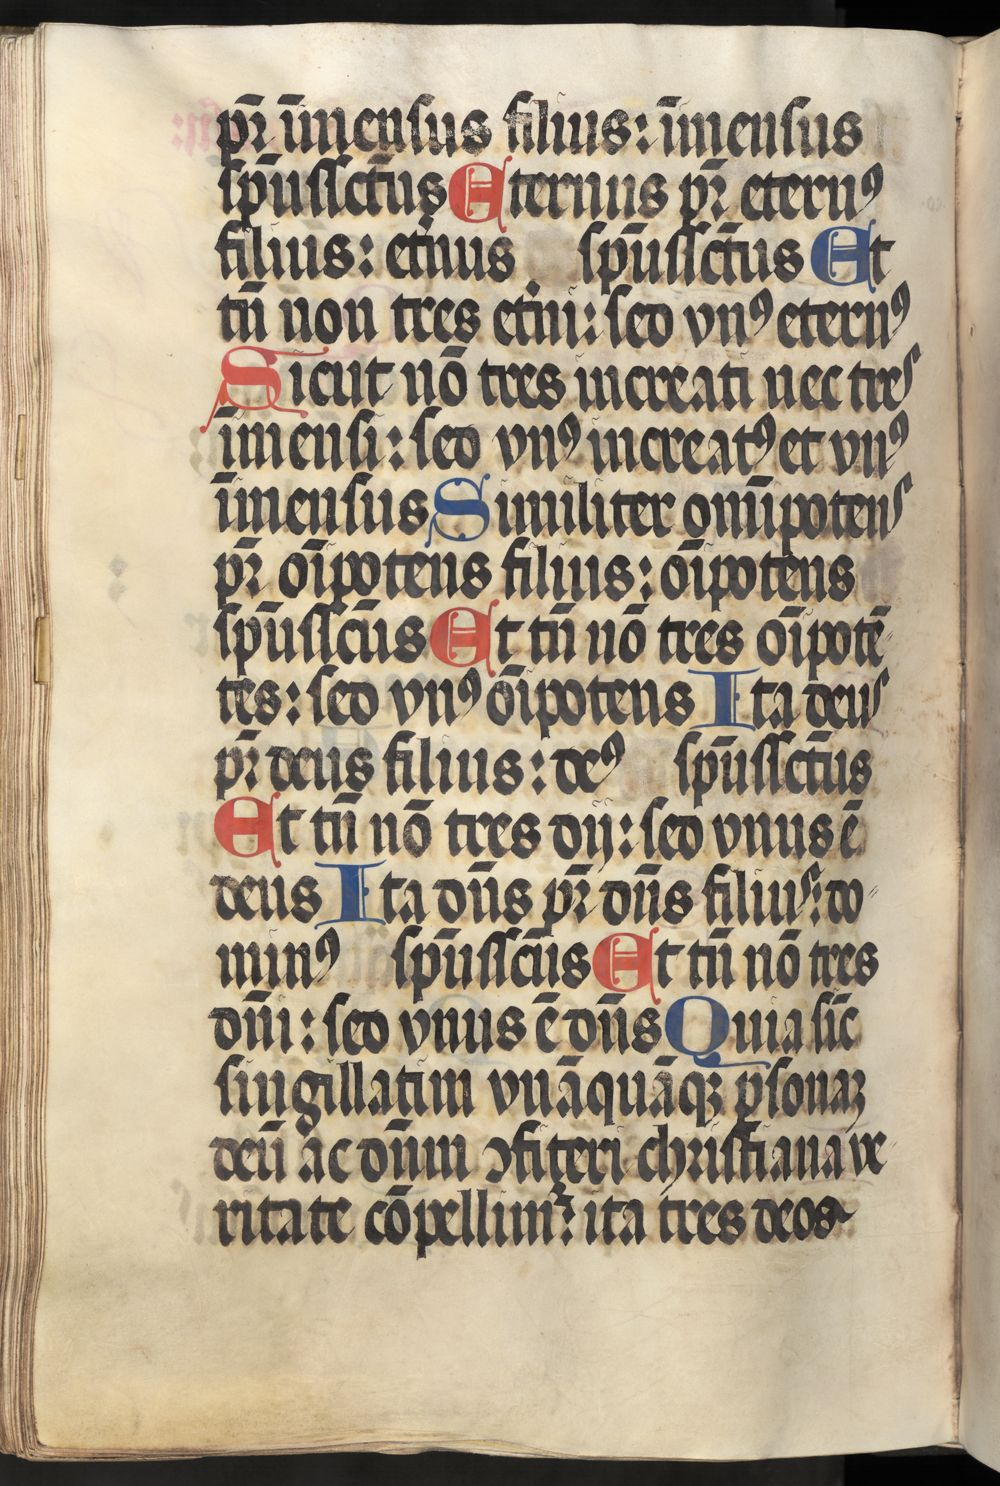 pr̄ īmensus filius: īmensus
sp̄ussc̄tus Eternus pr̄ eternꝰ
filius: et̄nus sp̄ussc̄tus Et
tn̄ non tres et̄ni: sed vnꝰ eternꝰ
Sicut nō tres increati nec tres
īmensi: sed vnꝰ increatꝰ et vnꝰ
īmensus Similiter om̄ipotens
pr̄ oīpotens filius: oīpotens
sp̄ussc̄us Et tn̄ nō tres oīpotē-
tes: sed vnꝰ oīpotens Ita deus
pr̄ deus filius: deꝰ sp̄ussc̄tus
Et tn̄ nō tres dij: sed vnus ē
deus Ita dn̄s pr̄ dn̄s filius: do-
minꝰ sp̄ussc̄us Et tn̄ nō tres
dn̄i: sed vnus ē dn̄s Quia sic̄
singillatim vnāquāqꝫ ꝑsonaꝫ
deū ac dn̄m ꝯfiteri christiana ve-
ritate cōpellimꝰ: ita tres deos